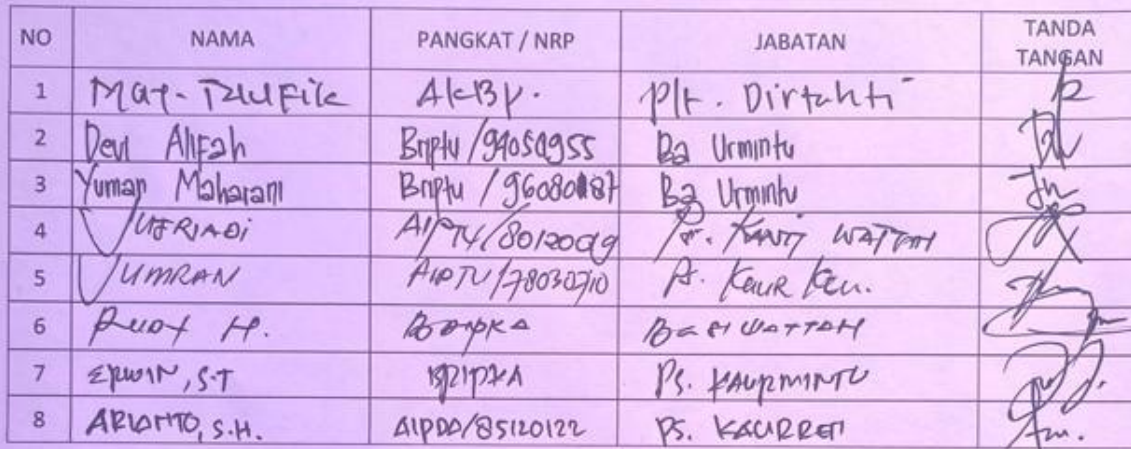 NO NAMA PANGKAT / NRP JABATAN TANDA TANGAN
1 AKBP. Plt. Dirtahti
2 Devi Alifah Briptu /94050955 Ba Urmintu
3 Yuman Maharani Briptu / Ba Urmintu
4 YUFRIADI AIPTU/80120019 WATTAH
5 YUMRAN AIPTU/78030710 Kaur Keu.
6 H. BRIPKA
7 ERWIN, S.T BRIPKA Ps. KAURMINTU
8 ARIANTO, S.H. AIPDA/85120122 PS. KAURREN